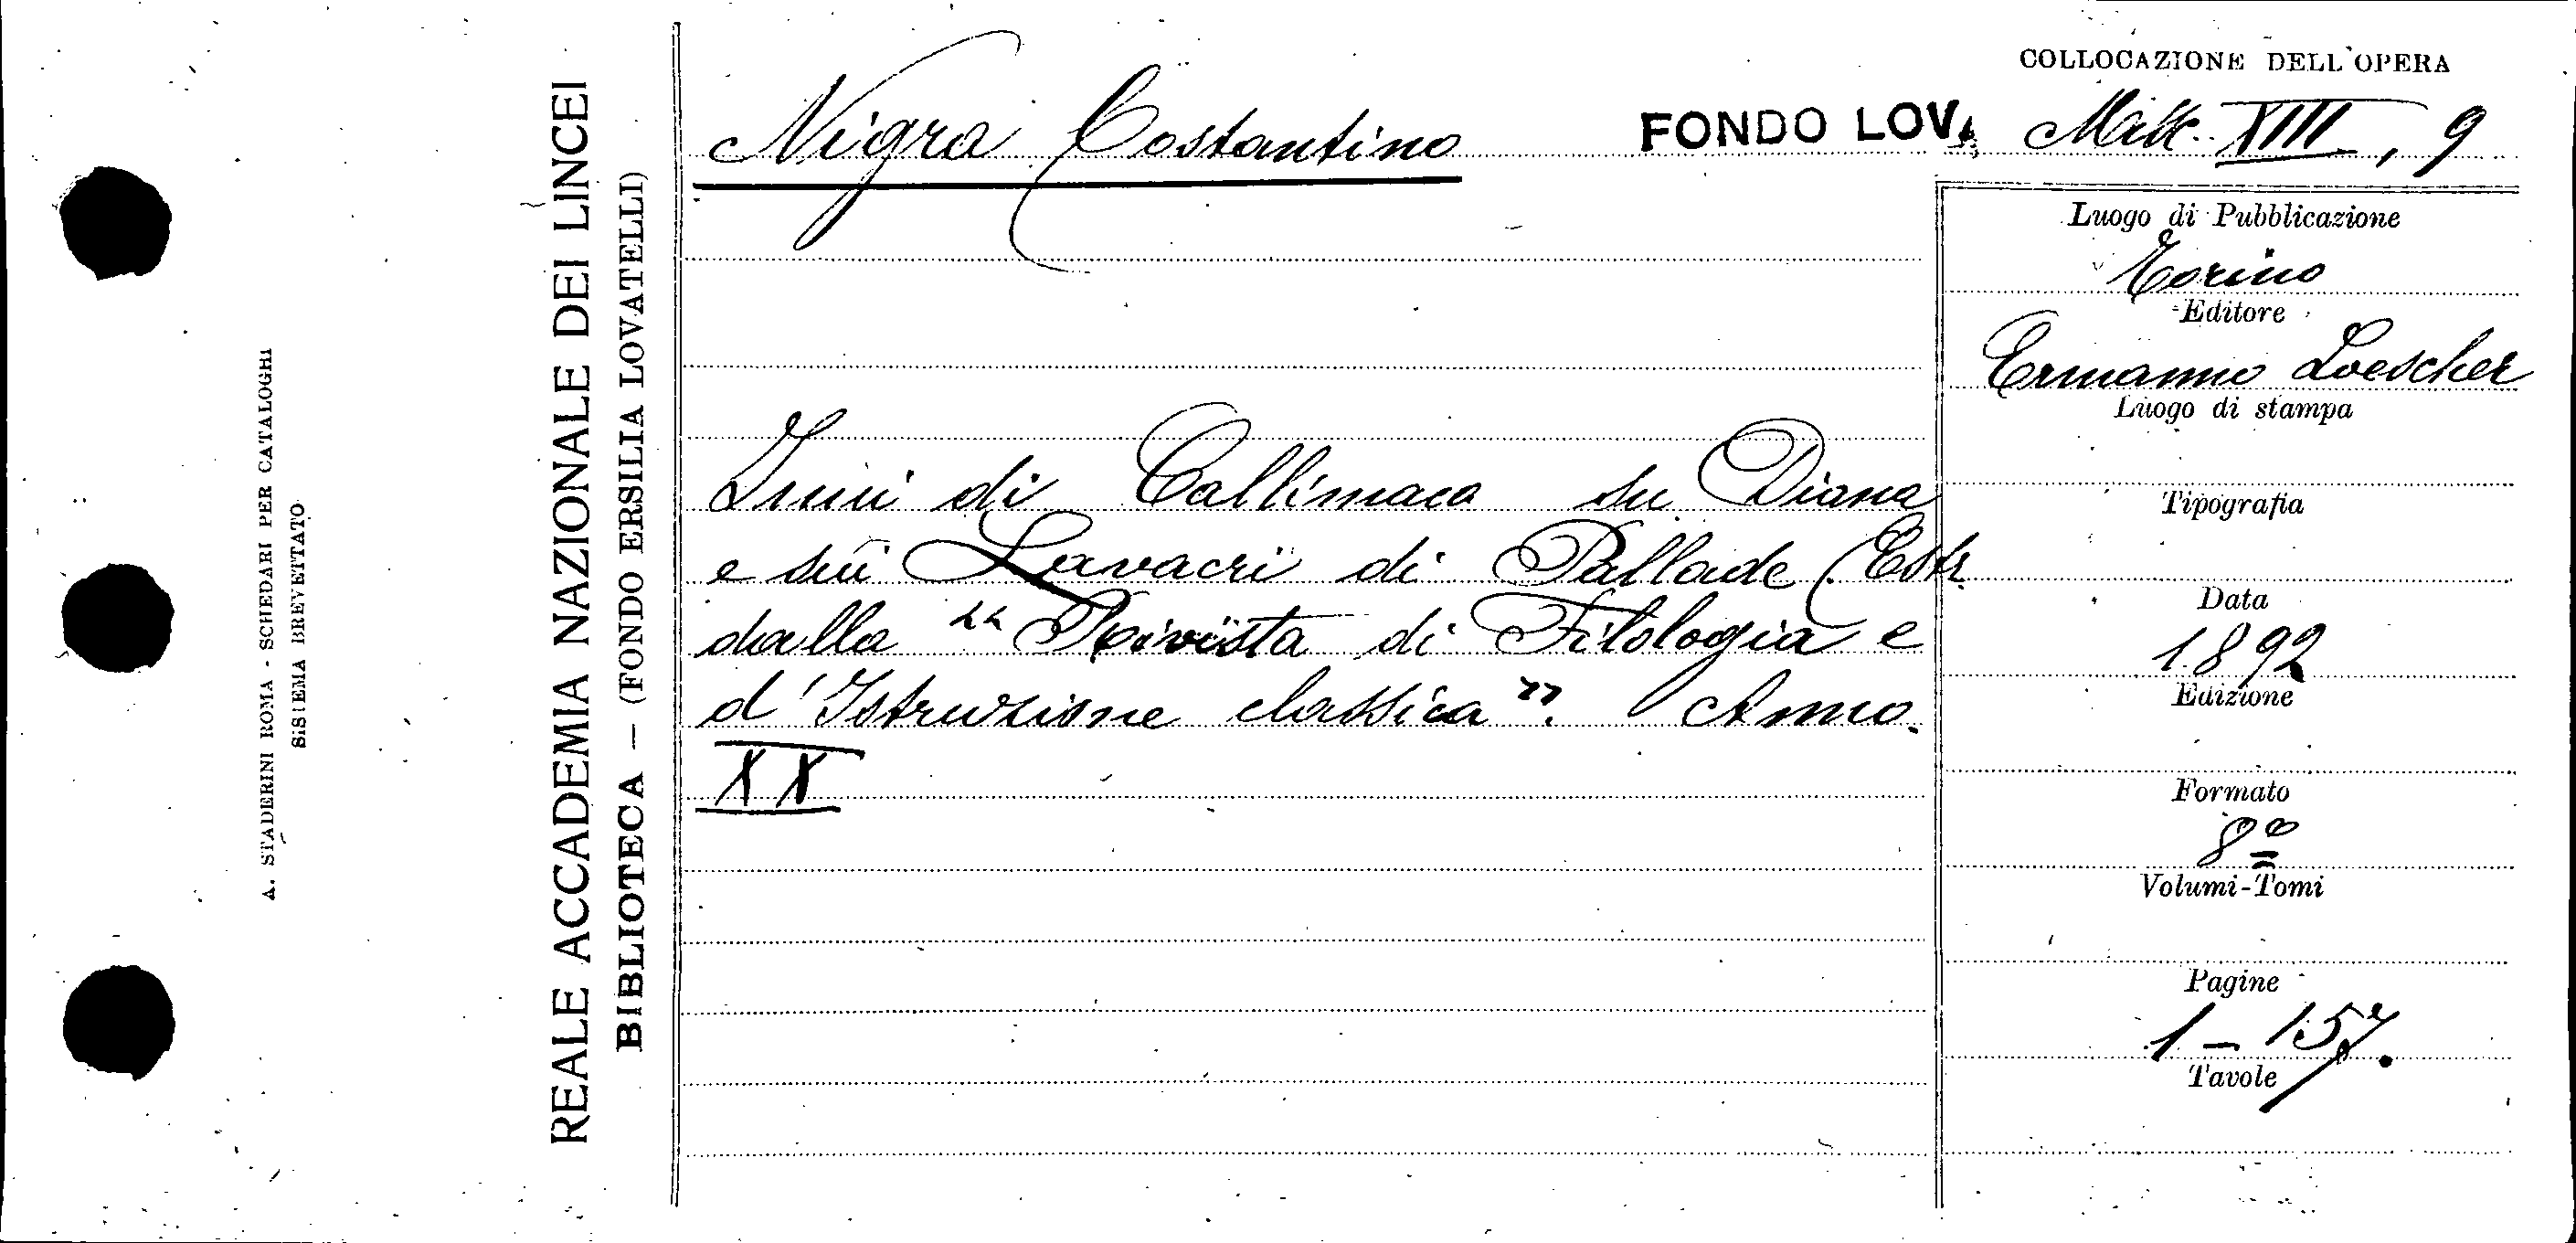 A. STADERINI ROMA - SCHEDARI PER CATALOGHI
SISTEMA BREVETTATO
REALE ACCADEMIA NAZIONALE DEI LINCEI
BIBLIOTECA — (FONDO ERSILIA LOVATELLI)
COLLOCAZIONE DELL'OPERA
Nigra Costantino
FONDO LOV. Misc. XIII, 9
Inni di Callimaco su Diana
e sui Lavacri di Pallade (Estr.
dalla "Rivista di Filologia e
d'Istruzione classica". Anno
XX
Luogo di Pubblicazione
Torino
Editore
Ermanno Loescher
Luogo di stampa
Tipografia
Data
1892
Edizione
Formato
8º
Volumi-Tomi
Pagine
1-157.
Tavole